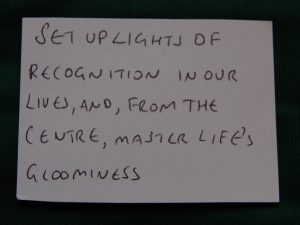 SET UP LIGHTS OF
RECOGNITION IN OUR
LIVES, AND, FROM THE
CENTRE, MASTER LIFE'S
GLOOMINESS